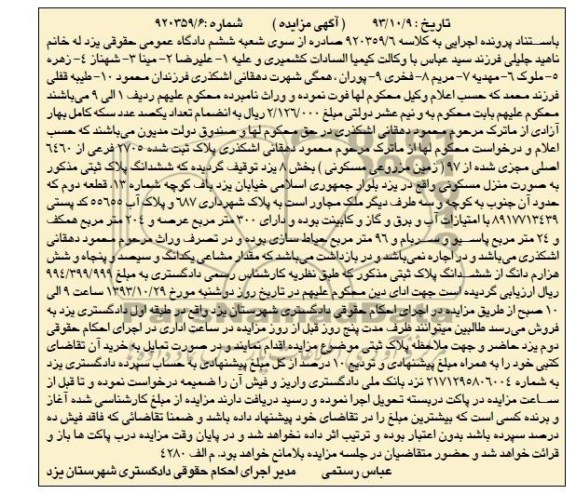 تاریخ : ۹۳/۱۰/۹ ( آگهی مزایده ) شماره :۹۲۰۳۵۹/۶
باستناد پرونده اجرایی به کلاسه ۹۲۰۳۵۹/۶ صادره از سوی شعبه ششم دادگاه عمومی حقوقی یزد له خانم
ناهید جلیلی فرزند سید عباس با وکالت کیمیا السادات کشمیری و علیه ۱- علیرضا ۲- مینا ۳- شهناز ۴- زهره
۵- ملوک ۶- مهدیه ۷- مریم ۸- فخری ۹- پوران ، همگی شهرت دهقانی اشکذری فرزندان محمود ۱۰- طیبه قفلی
فرزند محمد که حسب اعلام وکیل محکوم لها فوت نموده و وراث نامبرده محکوم علیهم ردیف ۱ الی ۹ میباشند
محکوم علیهم بابت محکوم به و نیم عشر دولتی مبلغ ۲/۱۲۶/۰۰۰ ریال به انضمام تعداد یکصد عدد سکه کامل بهار
آزادی از ماترک مرحوم محمود دهقانی اشکذری در حق محکوم لها و صندوق دولت مدیون می‌باشند که حسب
اعلام و درخواست محکوم لها از ماترک مرحوم محمود دهقانی اشکذری پلاک ثبت شده ۲۷۰۵ فرعی از ۶۴۶۰
اصلی مجزی شده از ۹۷ ( زمین مزروعی مسکونی ) بخش ۸ یزد توقیف گردیده که ششدانگ پلاک ثبتی مذکور
به صورت منزل مسکونی واقع در یزد بلوار جمهوری اسلامی خیابان یزد باف کوچه شماره ۱۳، قطعه دوم که
حدود آن جنوب به کوچه و سه طرف دیگر ملک مجاور است به پلاک شهرداری ۶۸۷ و پلاک آب ۵۵۶۵۵ کد پستی
۸۹۱۷۷۱۳۴۳۹ با امتیازات آب و برق و گاز و کابینت بوده و دارای ۳۰۰ متر مربع عرصه و ۲۰۴ متر مربع همکف
و ۲۴ متر مربع پاسیو و سربام و ۹۶ متر مربع حیاط سازی بوده و در تصرف وراث مرحوم محمود دهقانی
اشکذری می‌باشد و در اجاره نمی‌باشد و در بازداشت می‌باشد که مقدار مشاعی یکدانگ و سیصد و پنجاه و شش
هزارم دانگ از ششدانگ پلاک ثبتی مذکور که طبق نظریه کارشناس رسمی دادگستری به مبلغ ۹۹۴/۳۹۹/۹۹۹
ریال ارزیابی گردیده است جهت ادای دین محکوم علیهم در تاریخ روز دوشنبه مورخ ۱۳۹۳/۱۰/۲۹ ساعت ۹ الی
۱۰ صبح از طریق مزایده در اجرای احکام حقوقی دادگستری شهرستان یزد واقع در طبقه اول دادگستری یزد به
فروش می‌رسد طالبین میتوانند ظرف مدت پنج روز قبل از روز مزایده در ساعت اداری در اجرای احکام حقوقی
دوم یزد حاضر و جهت ملاحظه پلاک ثبتی موضوع مزایده اقدام نمایند و در صورت تمایل به خرید آن تقاضای
کتبی خود را به همراه مبلغ پیشنهادی و تودیع ۱۰ درصد از کل مبلغ پیشنهادی به حساب سپرده دادگستری یزد
به شماره ۲۱۷۱۲۹۵۸۰۶۰۰۴ نزد بانک ملی دادگستری واریز و فیش آن را ضمیمه درخواست نموده و تا قبل از
ساعت مزایده در پاکت دربسته تحویل اجرا نموده و رسید دریافت دارند مزایده از مبلغ کارشناسی شده آغاز
و برنده کسی است که بیشترین مبلغ را در تقاضای خود پیشنهاد داده باشد و ضمنا تقاضائی که فاقد فیش ده
درصد سپرده باشد بدون اعتبار بوده و ترتیب اثر داده نخواهد شد و در پایان وقت مزایده درب پاکت ها باز و
قرائت خواهد شد و حضور متقاضیان در جلسه مزایده بلامانع خواهد بود. م الف ۴۲۸۰
عباس رستمی مدیر اجرای احکام حقوقی دادگستری شهرستان یزد